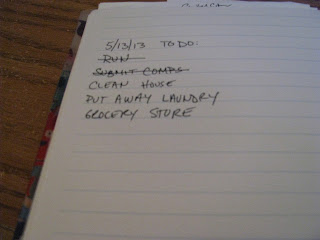 5/13/13 TO DO:
RUN
SUBMIT COMPS
CLEAN HOUSE
PUT AWAY LAUNDRY
GROCERY STORE